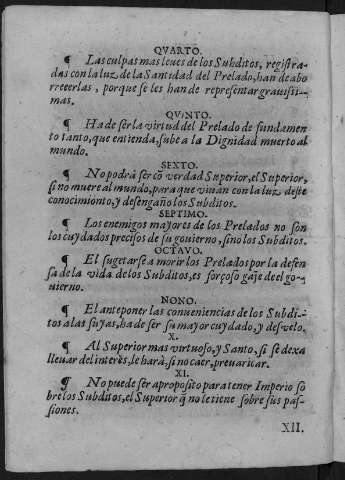 QVARTO.
¶ Las culpas mas leues de los Subditos, registra-
das con la luz de la Santidad del Prelado, han de abo
rrecerlas, porque se les han de representar grauissi-
mas.
QVINTO.
¶ Ha de ser la virtud del Prelado de fundamen
to tanto, que entienda, sube a la Dignidad muerto al
mundo.
SEXTO.
¶ No podrà ser cõ verdad Superior, el Superior,
si no muere al mundo, para que viuan con la luz deste
conocimiento, y desengaño los Subditos.
SEPTIMO.
¶ Los enemigos mayores de los Prelados no son
los cuydados precisos de su gouierno, sino los Subditos.
OCTAVO.
¶ El sugetarse a morir los Prelados por la defen
sa de la vida de los Subditos, es forçoso gaje de el go-
uierno.
NONO.
¶ El anteponer las conueniencias de los Subdi-
tos a las suyas, ha de ser su mayor cuydado, y desvelo.
X.
¶ Al Superior mas virtuoso, y Santo, si se dexa
lleuar del interès, le harà, si no caer, preuaricar.
XI.
¶ No puede ser aproposito para tener Imperio so
bre los Subditos, el Superior q̃ no le tiene sobre sus pas-
siones.
XII.